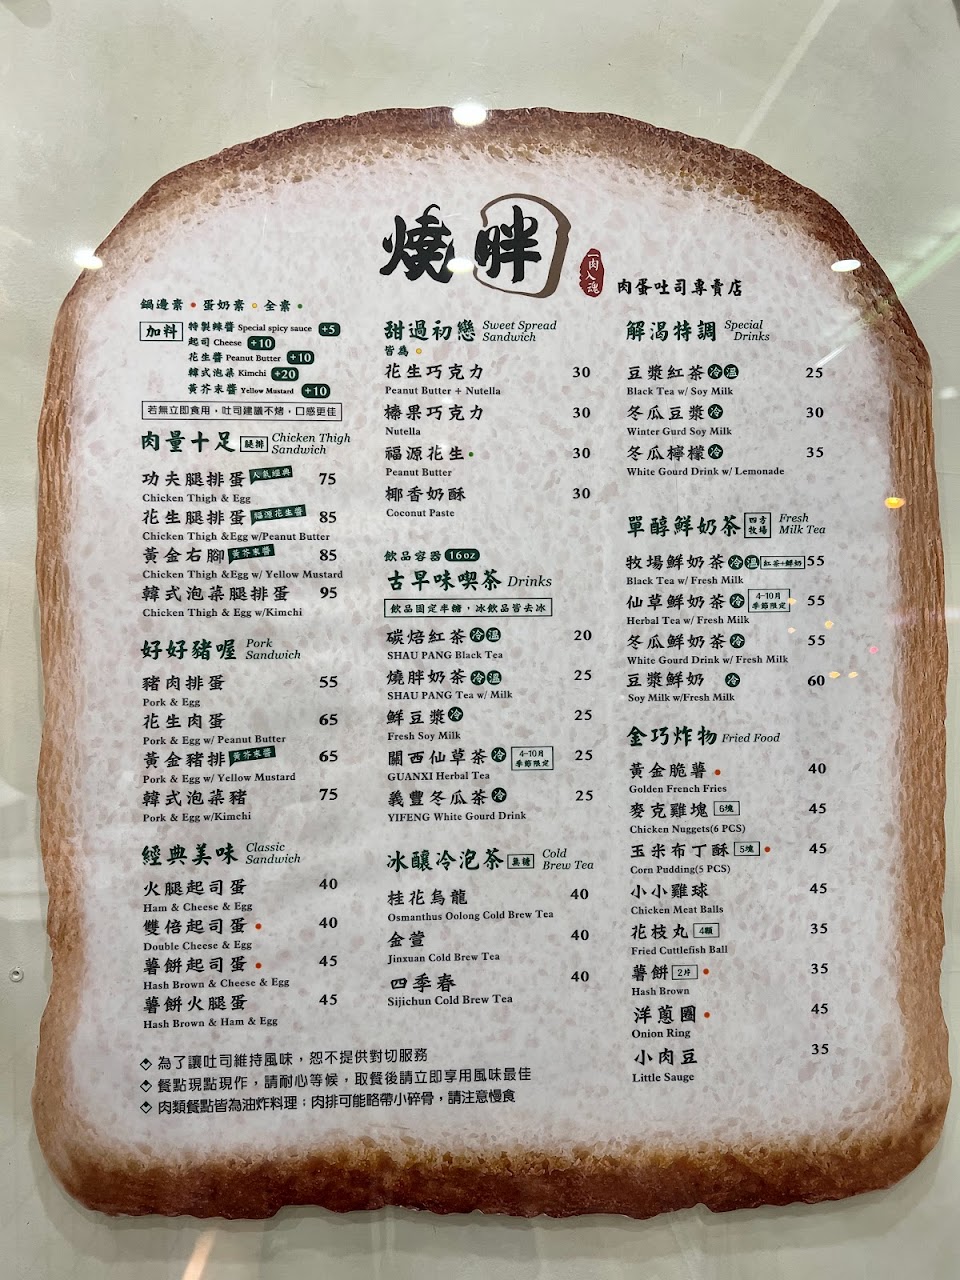 燒胖
一肉入魂
肉蛋吐司專賣店
鍋邊素 蛋奶素 全素
加料
特製辣醬 Special spicy sauce +5
起司 Cheese +10
花生醬 Peanut Butter +10
韓式泡菜 Kimchi +20
黃芥末醬 Yellow Mustard +10
若無立即食用，吐司建議不烤，口感更佳
肉量十足 腿排 Chicken Thigh Sandwich
功夫腿排蛋 人氣經典 75
Chicken Thigh & Egg
花生腿排蛋 福源花生醬 85
Chicken Thigh &Egg w/Peanut Butter
黃金右腳 黃芥末醬 85
Chicken Thigh &Egg w/ Yellow Mustard
韓式泡菜腿排蛋 95
Chicken Thigh & Egg w/Kimchi
好好豬喔 Pork Sandwich
豬肉排蛋 55
Pork & Egg
花生肉蛋 65
Pork & Egg w/ Peanut Butter
黃金豬排 黃芥末醬 65
Pork & Egg w/ Yellow Mustard
韓式泡菜豬 75
Pork & Egg w/Kimchi
經典美味 Classic Sandwich
火腿起司蛋 40
Ham & Cheese & Egg
雙倍起司蛋 40
Double Cheese & Egg
薯餅起司蛋 45
Hash Brown & Cheese & Egg
薯餅火腿蛋 45
Hash Brown & Ham & Egg
甜過初戀 Sweet Spread Sandwich
皆為
花生巧克力 30
Peanut Butter + Nutella
榛果巧克力 30
Nutella
福源花生 30
Peanut Butter
椰香奶酥 30
Coconut Paste
飲品容器 16oz
古早味喫茶 Drinks
飲品固定半糖，冰飲品皆去冰
碳焙紅茶 冷 溫 20
SHAU PANG Black Tea
燒胖奶茶 冷 溫 25
SHAU PANG Tea w/ Milk
鮮豆漿 冷 25
Fresh Soy Milk
關西仙草茶 冷 4-10月 季節限定 25
GUANXI Herbal Tea
義豐冬瓜茶 冷 25
YIFENG White Gourd Drink
冰釀冷泡茶 無糖 Cold Brew Tea
桂花烏龍 40
Osmanthus Oolong Cold Brew Tea
金萱 40
Jinxuan Cold Brew Tea
四季春 40
Sijichun Cold Brew Tea
解渴特調 Special Drinks
豆漿紅茶 冷 溫 25
Black Tea w/ Soy Milk
冬瓜豆漿 冷 30
Winter Gurd Soy Milk
冬瓜檸檬 冷 35
White Gourd Drink w/ Lemonade
單醇鮮奶茶 四方牧場 Fresh Milk Tea
牧場鮮奶茶 冷 溫 紅茶+鮮奶 55
Black Tea w/ Fresh Milk
仙草鮮奶茶 冷 4-10月 季節限定 55
Herbal Tea w/ Fresh Milk
冬瓜鮮奶茶 冷 55
White Gourd Drink w/ Fresh Milk
豆漿鮮奶 冷 60
Soy Milk w/Fresh Milk
金巧炸物 Fried Food
黃金脆薯 40
Golden French Fries
麥克雞塊 6塊 45
Chicken Nuggets(6 PCS)
玉米布丁酥 5塊 45
Corn Pudding(5 PCS)
小小雞球 45
Chicken Meat Balls
花枝丸 4顆 35
Fried Cuttlefish Ball
薯餅 2片 35
Hash Brown
洋蔥圈 45
Onion Ring
小肉豆 35
Little Sauge
為了讓吐司維持風味，恕不提供對切服務
餐點現點現作，請耐心等候，取餐後請立即享用風味最佳
肉類餐點皆為油炸料理；肉排可能略帶小碎骨，請注意慢食